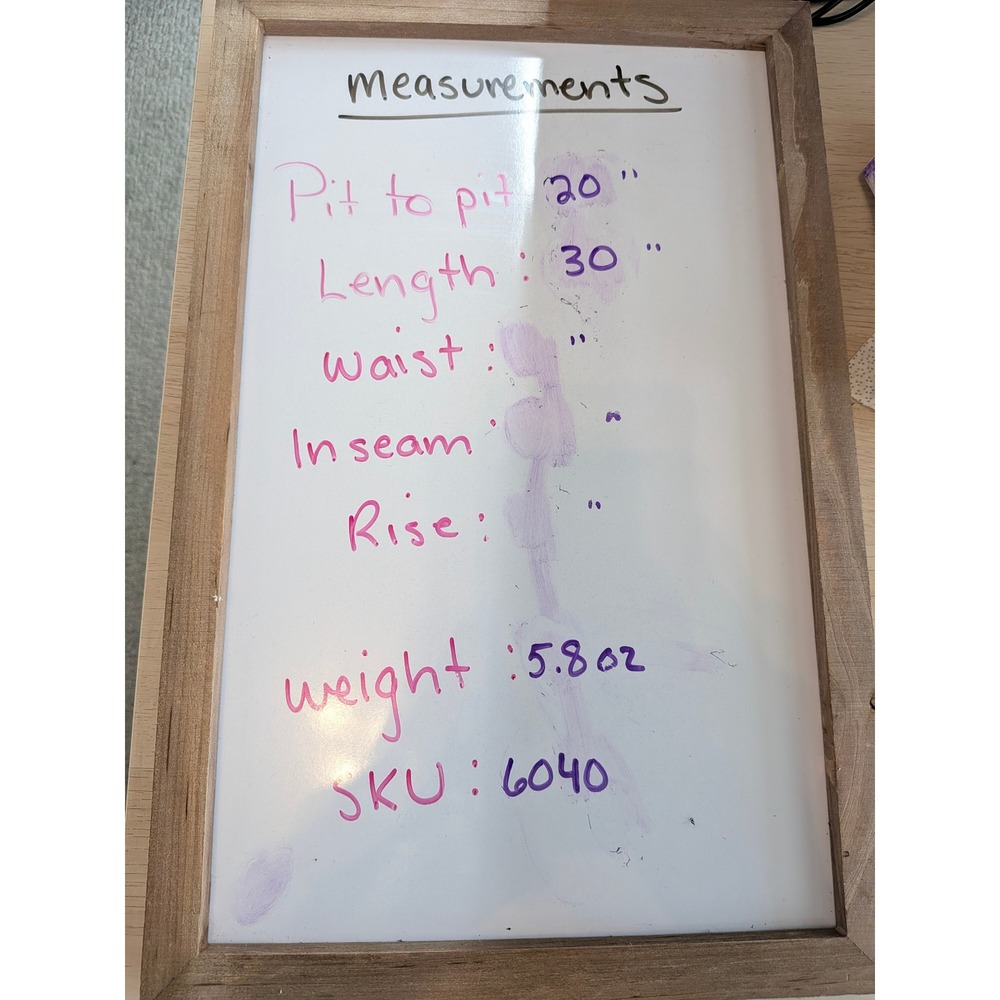 measurements
Pit to pit 20"
Length: 30"
Waist: "
Inseam: "
Rise: "
weight: 5.8 oz
SKU: 6040